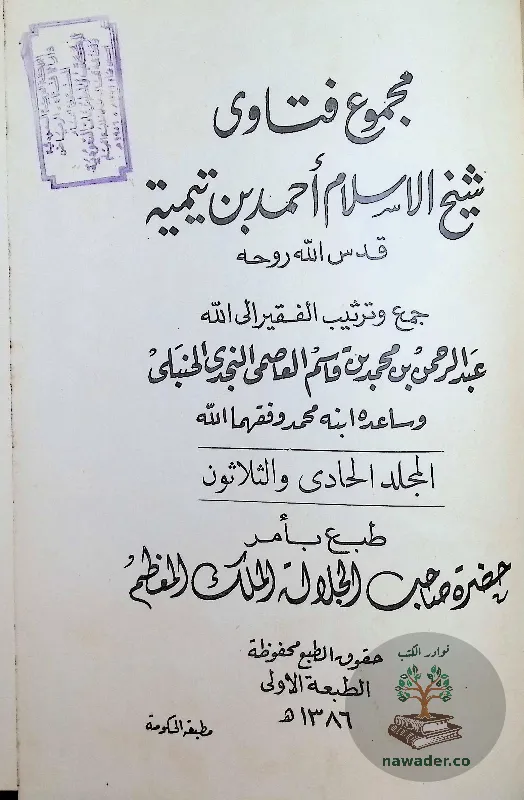 مجموع فتاوى
شيخ الاسلام أحمد بن تيمية
قدس الله روحه
جمع وترتيب الفقير الى الله
عبد الرحمن بن محمد بن قاسم العاصمى النجدى الحنبلى
وساعده ابنه محمد وفقهما الله
المجلد الحادى والثلاثون
طبع بأمر
حضرة صاحب الجلالة الملك المعظم
حقوق الطبع محفوظة
الطبعة الاولى
١٣٨٦ هـ
مطبعة الحكومة
نوادر الكتب
nawader.co